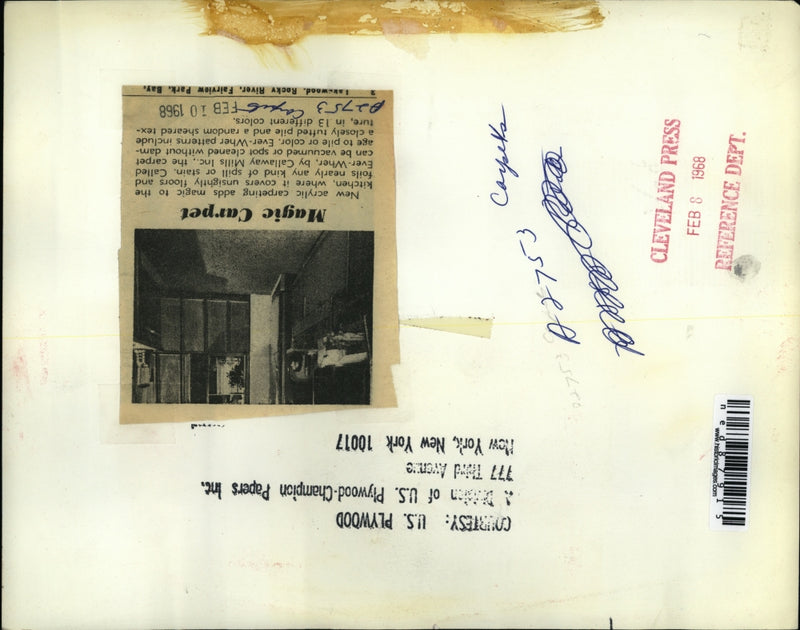 Magic Carpet
New acrylic carpeting adds magic to the
kitchen, where it covers unsightly floors and
foils nearly any kind of spill or stain. Called
Ever-Wher, by Callaway Mills Inc., the carpet
can be vacuumed or spot cleaned without dam-
age to pile or color. Ever-Wher patterns include
a closely tufted pile and a random sheared tex-
ture, in 13 different colors.
A2753 Carpets FEB 10 1968
Lakewood, Rocky River, Fairview Park, Bay,
Carpets
A2753
CLEVELAND PRESS
FEB 8 1968
REFERENCE DEPT.
COURTESY: U.S. PLYWOOD
A Division of U.S. Plywood-Champion Papers Inc.
777 Third Avenue
New York, New York 10017
ned87915
www.historicimages.com